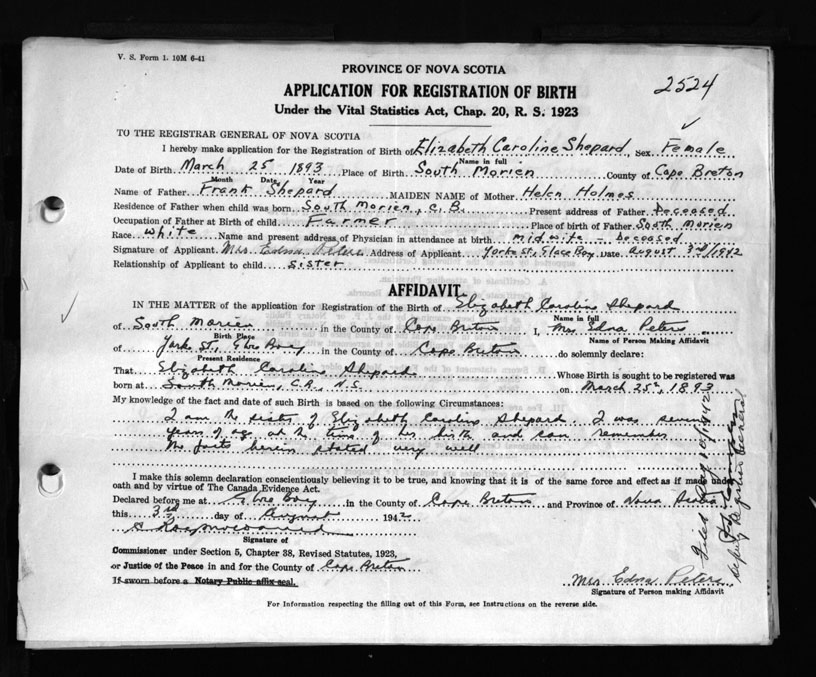 V. S. Form 1. 10M 6-41
PROVINCE OF NOVA SCOTIA
2524
APPLICATION FOR REGISTRATION OF BIRTH
Under the Vital Statistics Act, Chap. 20, R. S. 1923
TO THE REGISTRAR GENERAL OF NOVA SCOTIA
I hereby make application for the Registration of Birth of Elizabeth Caroline Shepard, Sex Female
Name in full
Date of Birth March 25 1893 Place of Birth South Morien County of Cape Breton
Month Date Year
Name of Father Frank Shepard MAIDEN NAME of Mother Helen Holmes
Residence of Father when child was born South Morien, C.B. Present address of Father Deceased
Occupation of Father at Birth of child Farmer Place of birth of Father South Morien
Race White Name and present address of Physician in attendance at birth midwife - Deceased
Signature of Applicant Mrs. Edna Peters Address of Applicant Yorke St, Glace Bay Date August 3rd/1942
Relationship of Applicant to child sister
AFFIDAVIT
IN THE MATTER of the application for Registration of the Birth of Elizabeth Caroline Shepard
Name in full
of South Morien in the County of Cape Breton I, Mrs Edna Peters
Birth Place Name of Person Making Affidavit
of Yorke St, Glace Bay in the County of Cape Breton do solemnly declare:
Present Residence
That Elizabeth Caroline Shepard Whose Birth is sought to be registered was
born at South Morien, C.B., N.S. on March 25th, 1893
My knowledge of the fact and date of such Birth is based on the following Circumstances:
I am the sister of Elizabeth Caroline Shepard I was seven
years of age at the time of her birth and can remember
the facts herein stated very well
I make this solemn declaration conscientiously believing it to be true, and knowing that it is of the same force and effect as if made under
oath and by virtue of The Canada Evidence Act.
Declared before me at Glace Bay in the County of Cape Breton and Province of Nova Scotia
this 3rd day of August 1942
Signature of
Commissioner under Section 5, Chapter 38, Revised Statutes, 1923,
or Justice of the Peace in and for the County of Cape Breton
If sworn before a Notary Public affix seal.
Mrs Edna Peters
Signature of Person making Affidavit
For Information respecting the filling out of this Form, see Instructions on the reverse side.
Deputy Registrar General